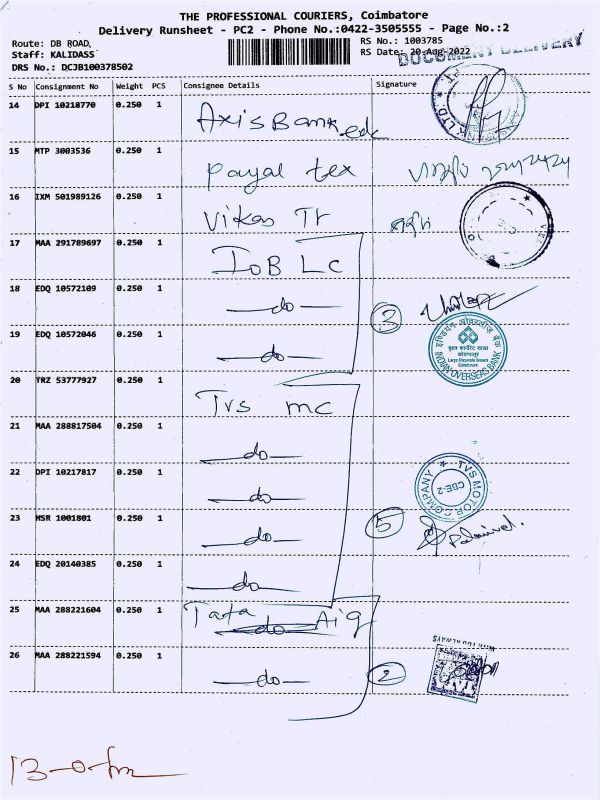 THE PROFESSIONAL COURIERS, Coimbatore
Delivery Runsheet - PC2 - Phone No.:0422-3505555 - Page No.:2
Route: DB ROAD,
RS No.: 1003785
Staff: KALIDASS
RS Date: 20-Aug-2022
DOCUMENT DELIVERY
DRS No.: DCJB100378502
S No Consignment No Weight PCS Consignee Details Signature
14 DPI 10218770 0.250 1 Axis Bank edc
15 MTP 3003536 0.250 1 Payal tex
16 IXM 501989126 0.250 1 Vikas Tr
17 MAA 291789697 0.250 1 IOB LC
18 EDQ 10572109 0.250 1 —do—
3
19 EDQ 10572046 0.250 1 —do—
इण्डियन ओवरसीज़ बैंक
Large Corporate Branch
Coimbatore
INDIAN OVERSEAS BANK
20 TRZ 53777927 0.250 1 Tvs mc
21 MAA 288817504 0.250 1 —do—
22 DPI 10217817 0.250 1 —do—
TVS MOTOR COMPANY
CBE-2
23 HSR 1001801 0.250 1 —do—
5
24 EDQ 20140385 0.250 1 —do—
25 MAA 288221604 0.250 1 Tata Aig
WITH YOU ALWAYS
26 MAA 288221594 0.250 1 —do—
2